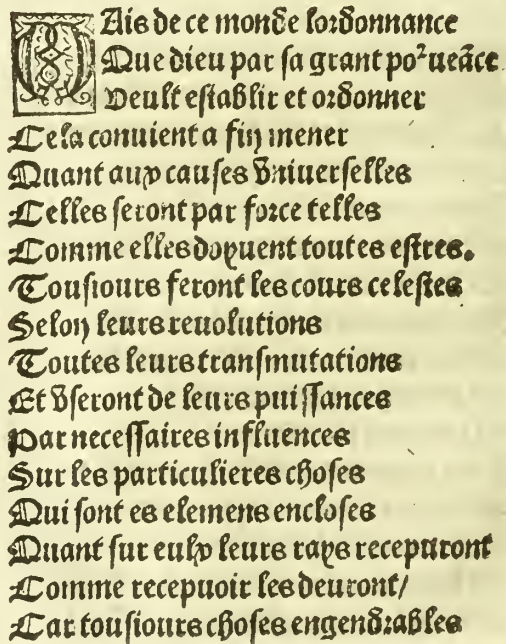 MAis de ce monde lordonnance
Que dieu par sa grant poꝛueãce
Veult establir et ordonner
Cela conuient a fin mener
Quant aux causes vniuerselles
Celles seront par force telles
Comme elles doyuent toutes estres.
Tousiours feront les cours celestes
Selon leurs reuolutions
Toutes leurs transmutations
Et vseront de leurs puissances
Par necessaires influences
Sur les particulieres choses
Qui sont es elemens encloses
Quant sur eulx leurs rays recepuront
Comme recepuoir les deuront/
Car tousiours choses engendrables